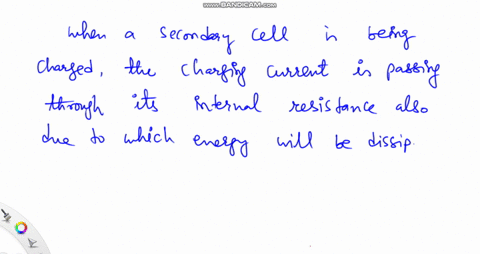 WWW.BANDICAM.COM
When a secondary cell is being
charged, the charging current is passing
through its internal resistance also
due to which energy will be dissip.